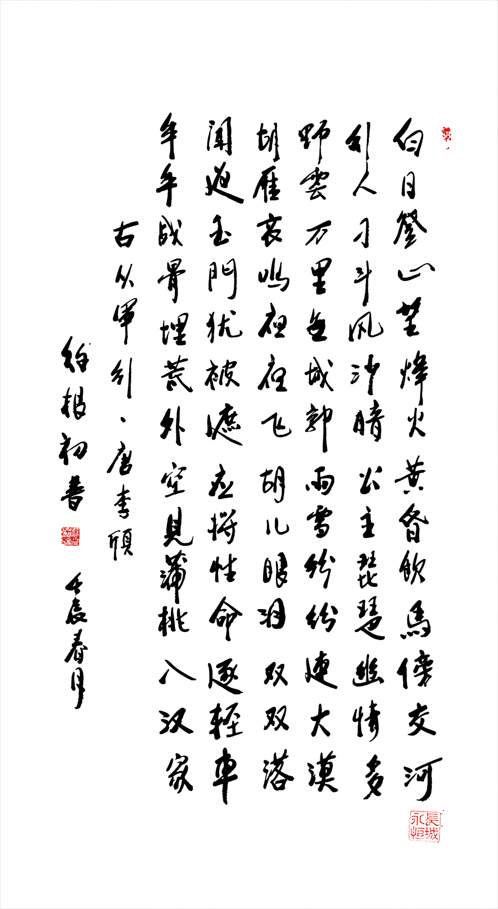 白日登山望烽火黄昏饮馬傍交河
行人刁斗风沙暗公主琵琶幽情多
野雲万里無城郭雨雪纷纷連大漠
胡雁哀鸣夜夜飞胡儿眼泪双双落
闻道玉門犹被遮应将性命逐輕車
年年战骨埋荒外空見蒲桃入汉家
古从軍行、唐李颀
徐根初書 壬辰春月
長城永恒